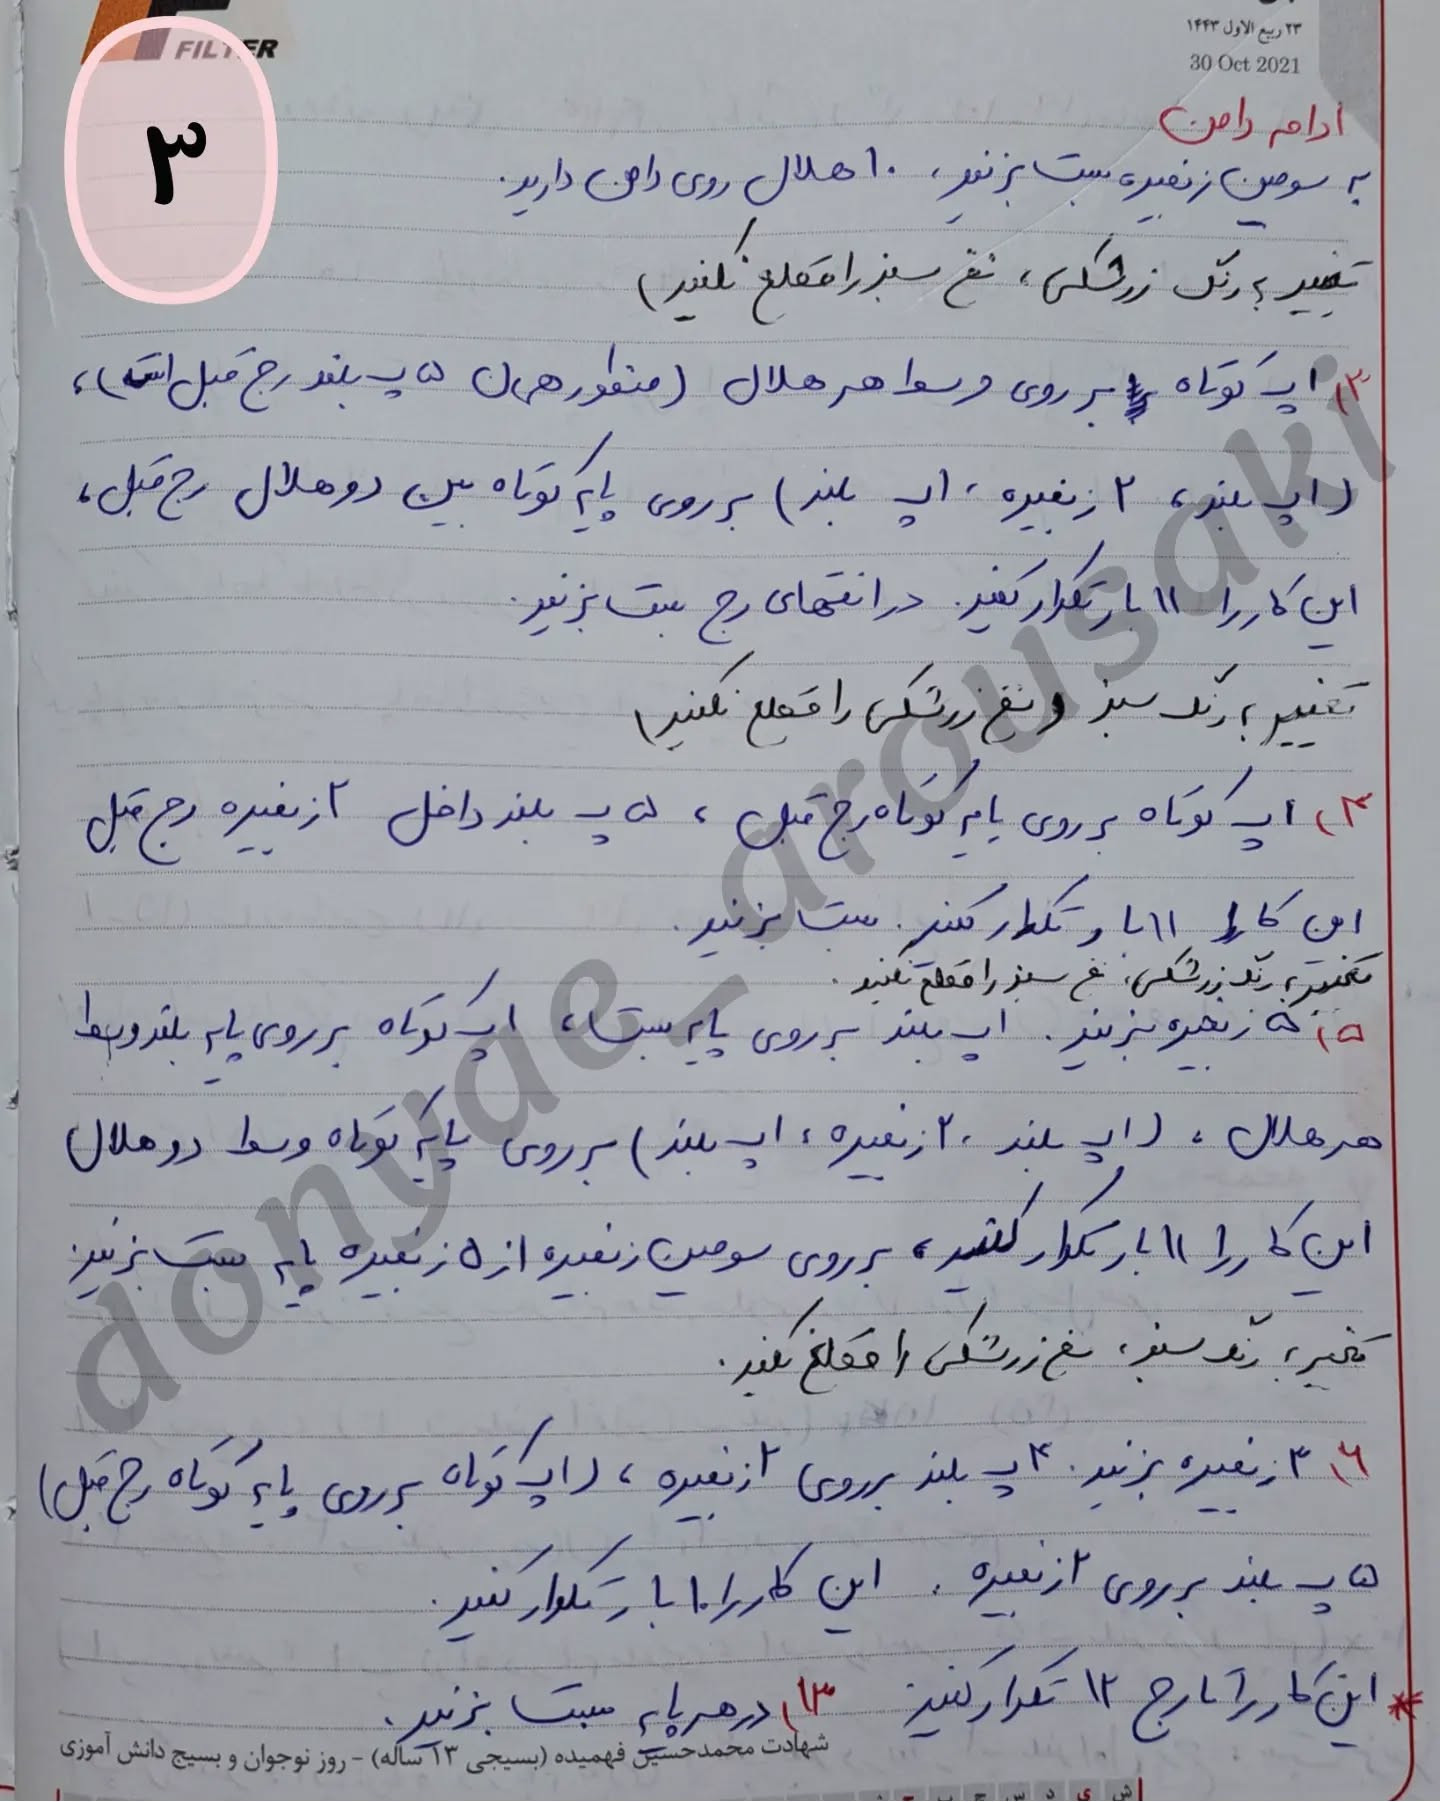 FILTER
۲۳ ربیع الاول ۱۴۴۳
30 Oct 2021
۳
ادامه دامن
به سومین زنجیره بست بزنید، ۱۰ هلال روی دامن دارید.
تغییر به رنگ زرشکی، نخ سبز را قطع نکنید)
۳) ۱پ کوتاه بر روی وسط هر هلال (منظور همان ۵پ بلند رج قبل است)،
(۱پ بلند، ۲ زنجیره، ۱پ بلند) بر روی پایه کوتاه بین دو هلال رج قبل،
این کار را ۱۱ بار تکرار کنید. در انتهای رج بست بزنید.
تغییر به رنگ سبز (نخ زرشکی را قطع نکنید)
۴) ۱پ کوتاه بر روی پایه کوتاه رج قبل، ۵پ بلند داخل ۲ زنجیره رج قبل
این کار را ۱۱ بار تکرار کنید. بست بزنید.
تغییر به رنگ زرشکی، نخ سبز را قطع نکنید.
۵) ۵ زنجیره بزنید. ۱پ بلند بر روی پایه بست، ۱پ کوتاه بر روی پایه بلند وسط
هر هلال، (۱پ بلند، ۲ زنجیره، ۱پ بلند) بر روی پایه کوتاه وسط دو هلال
این کار را ۱۱ بار تکرار کنید، بر روی سومین زنجیره از ۵ زنجیره پایه بست بزنید
تغییر به رنگ سبز، نخ زرشکی را قطع نکنید.
۶) ۳ زنجیره بزنید. ۴پ بلند بر روی ۲ زنجیره، (۱پ کوتاه بر روی پایه کوتاه رج قبل)
۵پ بلند بر روی ۲ زنجیره. این کار را ۱۰ بار تکرار کنید.
* این کار را تا رج ۱۲ تکرار کنید ۱۳) در هر پایه بست بزنید.
شهادت محمدحسین فهمیده (بسیجی ۱۳ ساله) - روز نوجوان و بسیج دانش آموزی
ش ی د س چ پ ج
donyae_arousaki